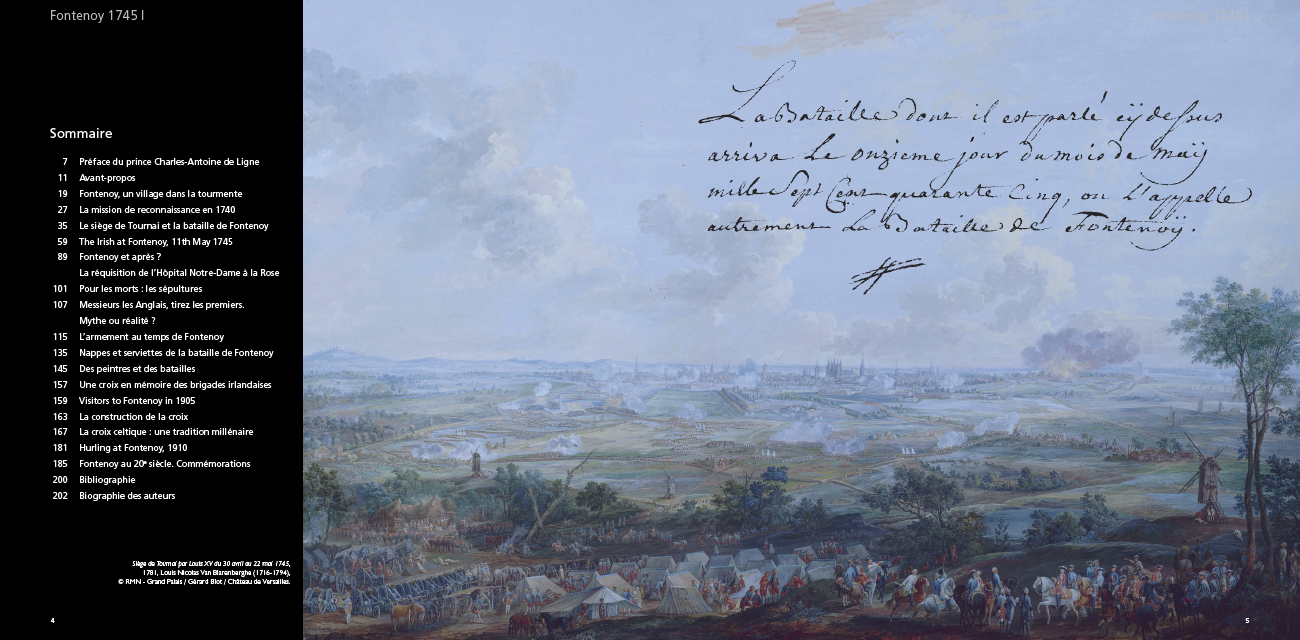 Fontenoy 1745 I
Sommaire
7 Préface du prince Charles-Antoine de Ligne
11 Avant-propos
19 Fontenoy, un village dans la tourmente
27 La mission de reconnaissance en 1740
35 Le siège de Tournai et la bataille de Fontenoy
59 The Irish at Fontenoy, 11th May 1745
89 Fontenoy et après ?
La réquisition de l'Hôpital Notre-Dame à la Rose
101 Pour les morts : les sépultures
107 Messieurs les Anglais, tirez les premiers.
Mythe ou réalité ?
115 L'armement au temps de Fontenoy
135 Nappes et serviettes de la bataille de Fontenoy
145 Des peintres et des batailles
157 Une croix en mémoire des brigades irlandaises
159 Visitors to Fontenoy in 1905
163 La construction de la croix
167 La croix celtique : une tradition millénaire
181 Hurling at Fontenoy, 1910
185 Fontenoy au 20e siècle. Commémorations
200 Bibliographie
202 Biographie des auteurs
Siège de Tournai par Louis XV du 30 avril au 22 mai 1745,
1781, Louis Nicolas Van Blarenberghe (1716-1794),
© RMN - Grand Palais / Gérard Blot / Château de Versailles.
4
La Bataille dont il est parlé cÿ dessus
arriva Le onzieme jour du mois de maÿ
mille Sept Cent quarante Cinq, on L'appelle
autrement La Bataille de Fontenoÿ.
5